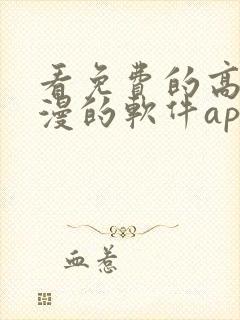 看免費的高
漫的軟件ap
血惹